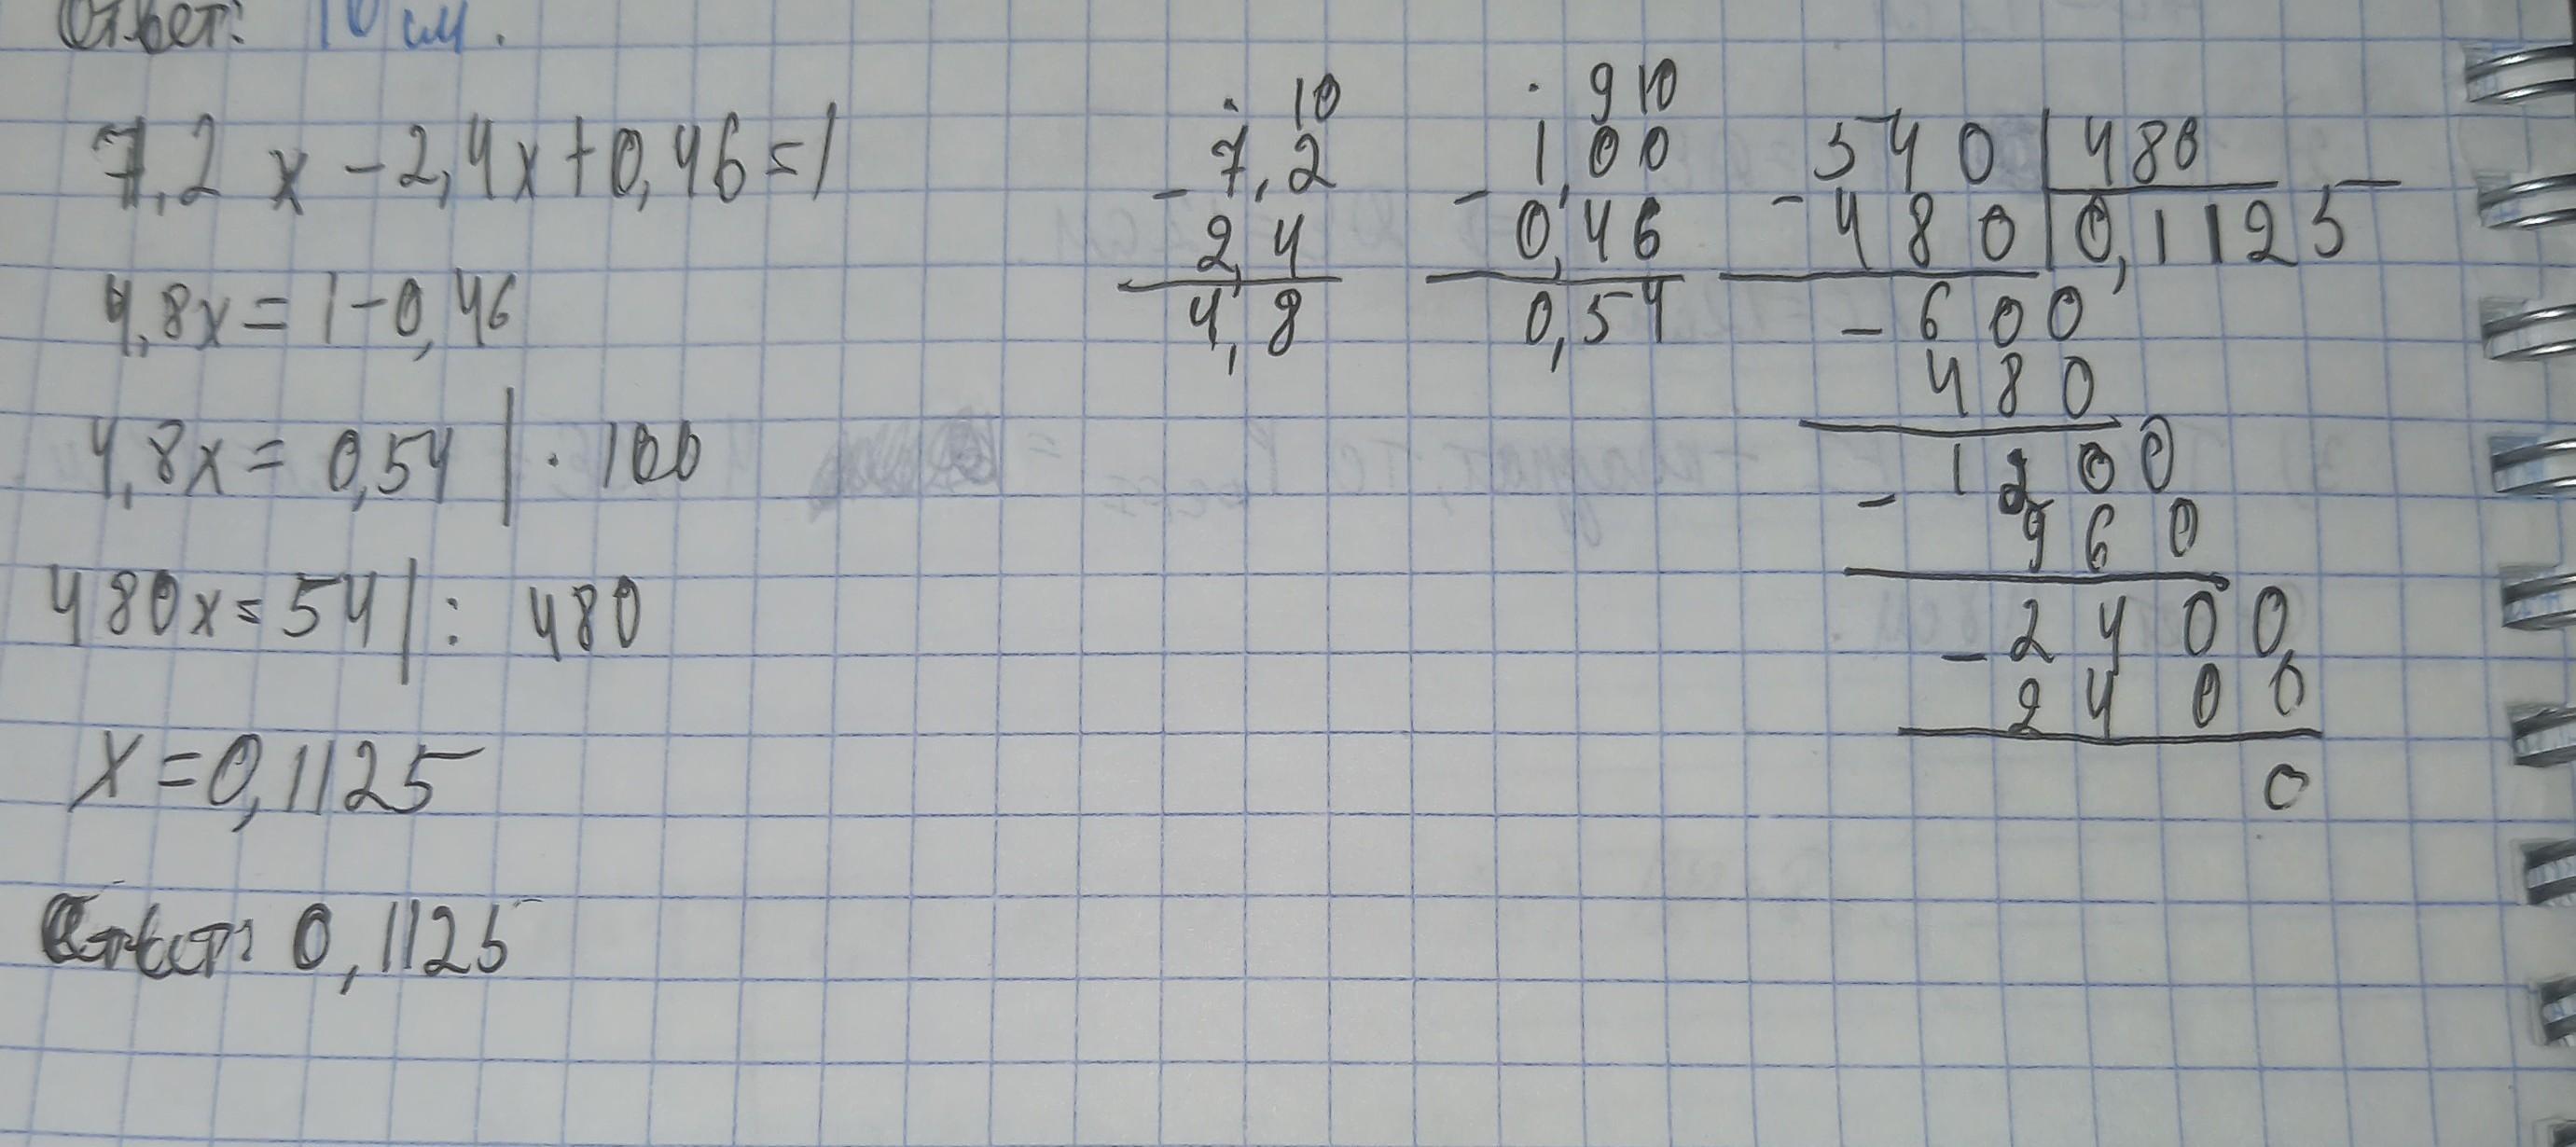 Ответ: 10 см.
7,2 x - 2,4x + 0,46 = 1
4,8x = 1 - 0,46
4,8x = 0,54 | · 100
480x = 54 | : 480
x = 0,1125
Ответ: 0,1125
· 10
- 7,2
2,4
4,8
· 9 10
- 1,00
0,46
0,54
- 540 | 480
480 | 0,1125
- 600
480
- 1200
960
- 2400
2400
0